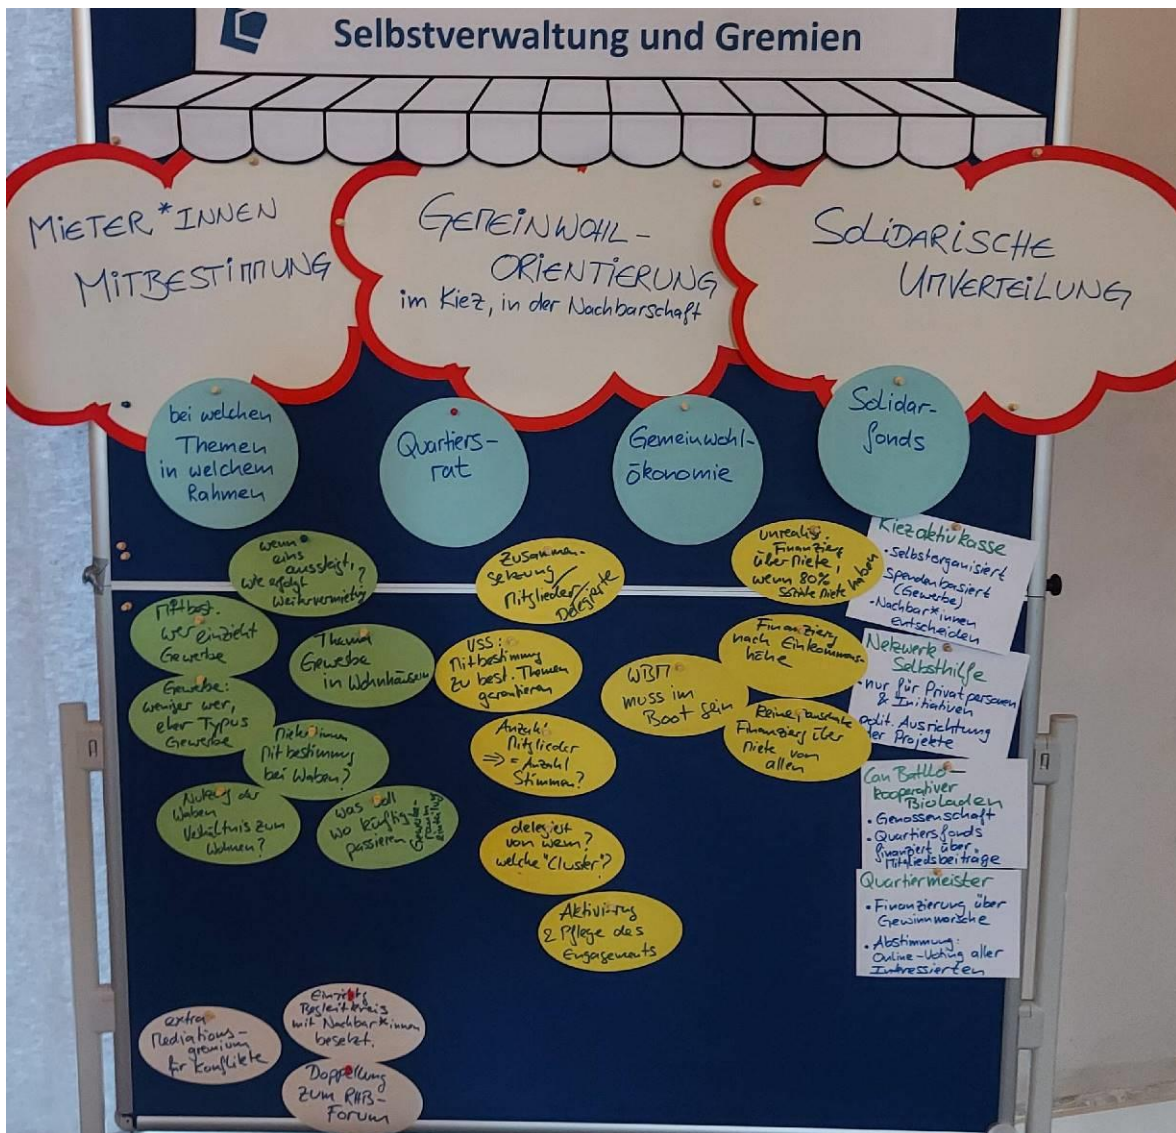 Selbstverwaltung und Gremien
MIETER*INNEN
MITBESTIMMUNG
GEMEINWOHL-
ORIENTIERUNG
im Kiez, in der Nachbarschaft
SOLIDARISCHE
UMVERTEILUNG
bei welchen
Themen
in welchem
Rahmen
Quartiers-
rat
Gemeinwohl-
ökonomie
Solidar-
fonds
wenn
eins
aussteigt,
wie erfolgt
Weitervermietg?
Mitbest.
wer einzieht
Gewerbe
Thema
Gewerbe
in Wohnhäusern
Gewerbe:
weniger wer,
eher Typus
Gewerbe
Mieter*innen
Mitbestimmung
bei Waben?
Nutzg der
Waben
Verhältnis zum
Wohnen?
was soll
wo künftig
passieren
Zusammen-
setzung
Mitglieder/
Delegierte
VSS:
Mitbestimmung
zu best. Themen
garantieren
Anzahl
Mitglieder
⇒ = Anzahl
Stimmen?
delegiert
von wem?
welche "Cluster"?
Aktivierung
& Pflege des
Engagements
unrealist.
Finanzierg
über Miete,
wenn 80%
soziale Miete haben
Finanzierg
nach Einkommens-
höhe
WBM
muss im
Boot sein
Finanzierg über
Miete von
allen
Kiezaktivkasse
• Selbstorganisiert
spendenbasiert
(Gewerbe)
• Nachbar*innen
entscheiden
Netzwerk
Selbsthilfe
• nur für Privatpersonen
& Initiativen
polit. Ausrichtung
der Projekte
Can Batlló -
kooperativer
Bioladen
• Genossenschaft
• Quartiersfonds
finanziert über
Mitgliedsbeiträge
Quartiermeister
• Finanzierung über
Gewinnwünsche
• Abstimmung:
Online-Voting aller
Interessierten
extra
Mediations-
gremium
für Konflikte
Begleitkreis
mit Nachbar*innen
besetzt.
Doppellung
zum RHB-
Forum